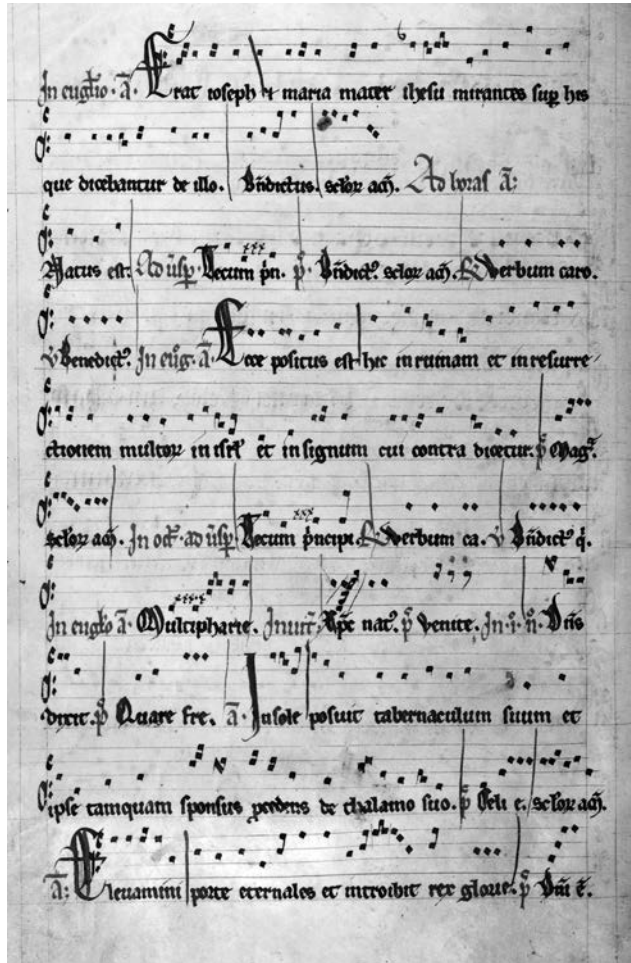 In euglio. a. Erat ioseph et maria mater ihesu mirantes sup his
que dicebantur de illo. Bndictus. sclor am. Ad horas a:
Natus est. Ad usp. Tecum pn. p. Bndict. sclor am. Verbum caro.
Benedict. In eug. a. Ecce positus est hic in ruinam et in resurre
ctionem multor in isrl et in signum cui contra dicetur. p Mag.
sclor am. In oct. ad usp. Tecum pncipi. Verbum ca. Bndict q.
In euglio a. Multipharie. Inuit. Xpc nat. p Venite. In. i. n. Dns
dixit. p Quare fre. a. In sole posuit tabernaculum suum et
ipse tamquam sponsus pcedens de thalamo suo. p Celi e. sclor am.
a: Eleuamini porte eternales et introibit rex glorie. p Dni e.